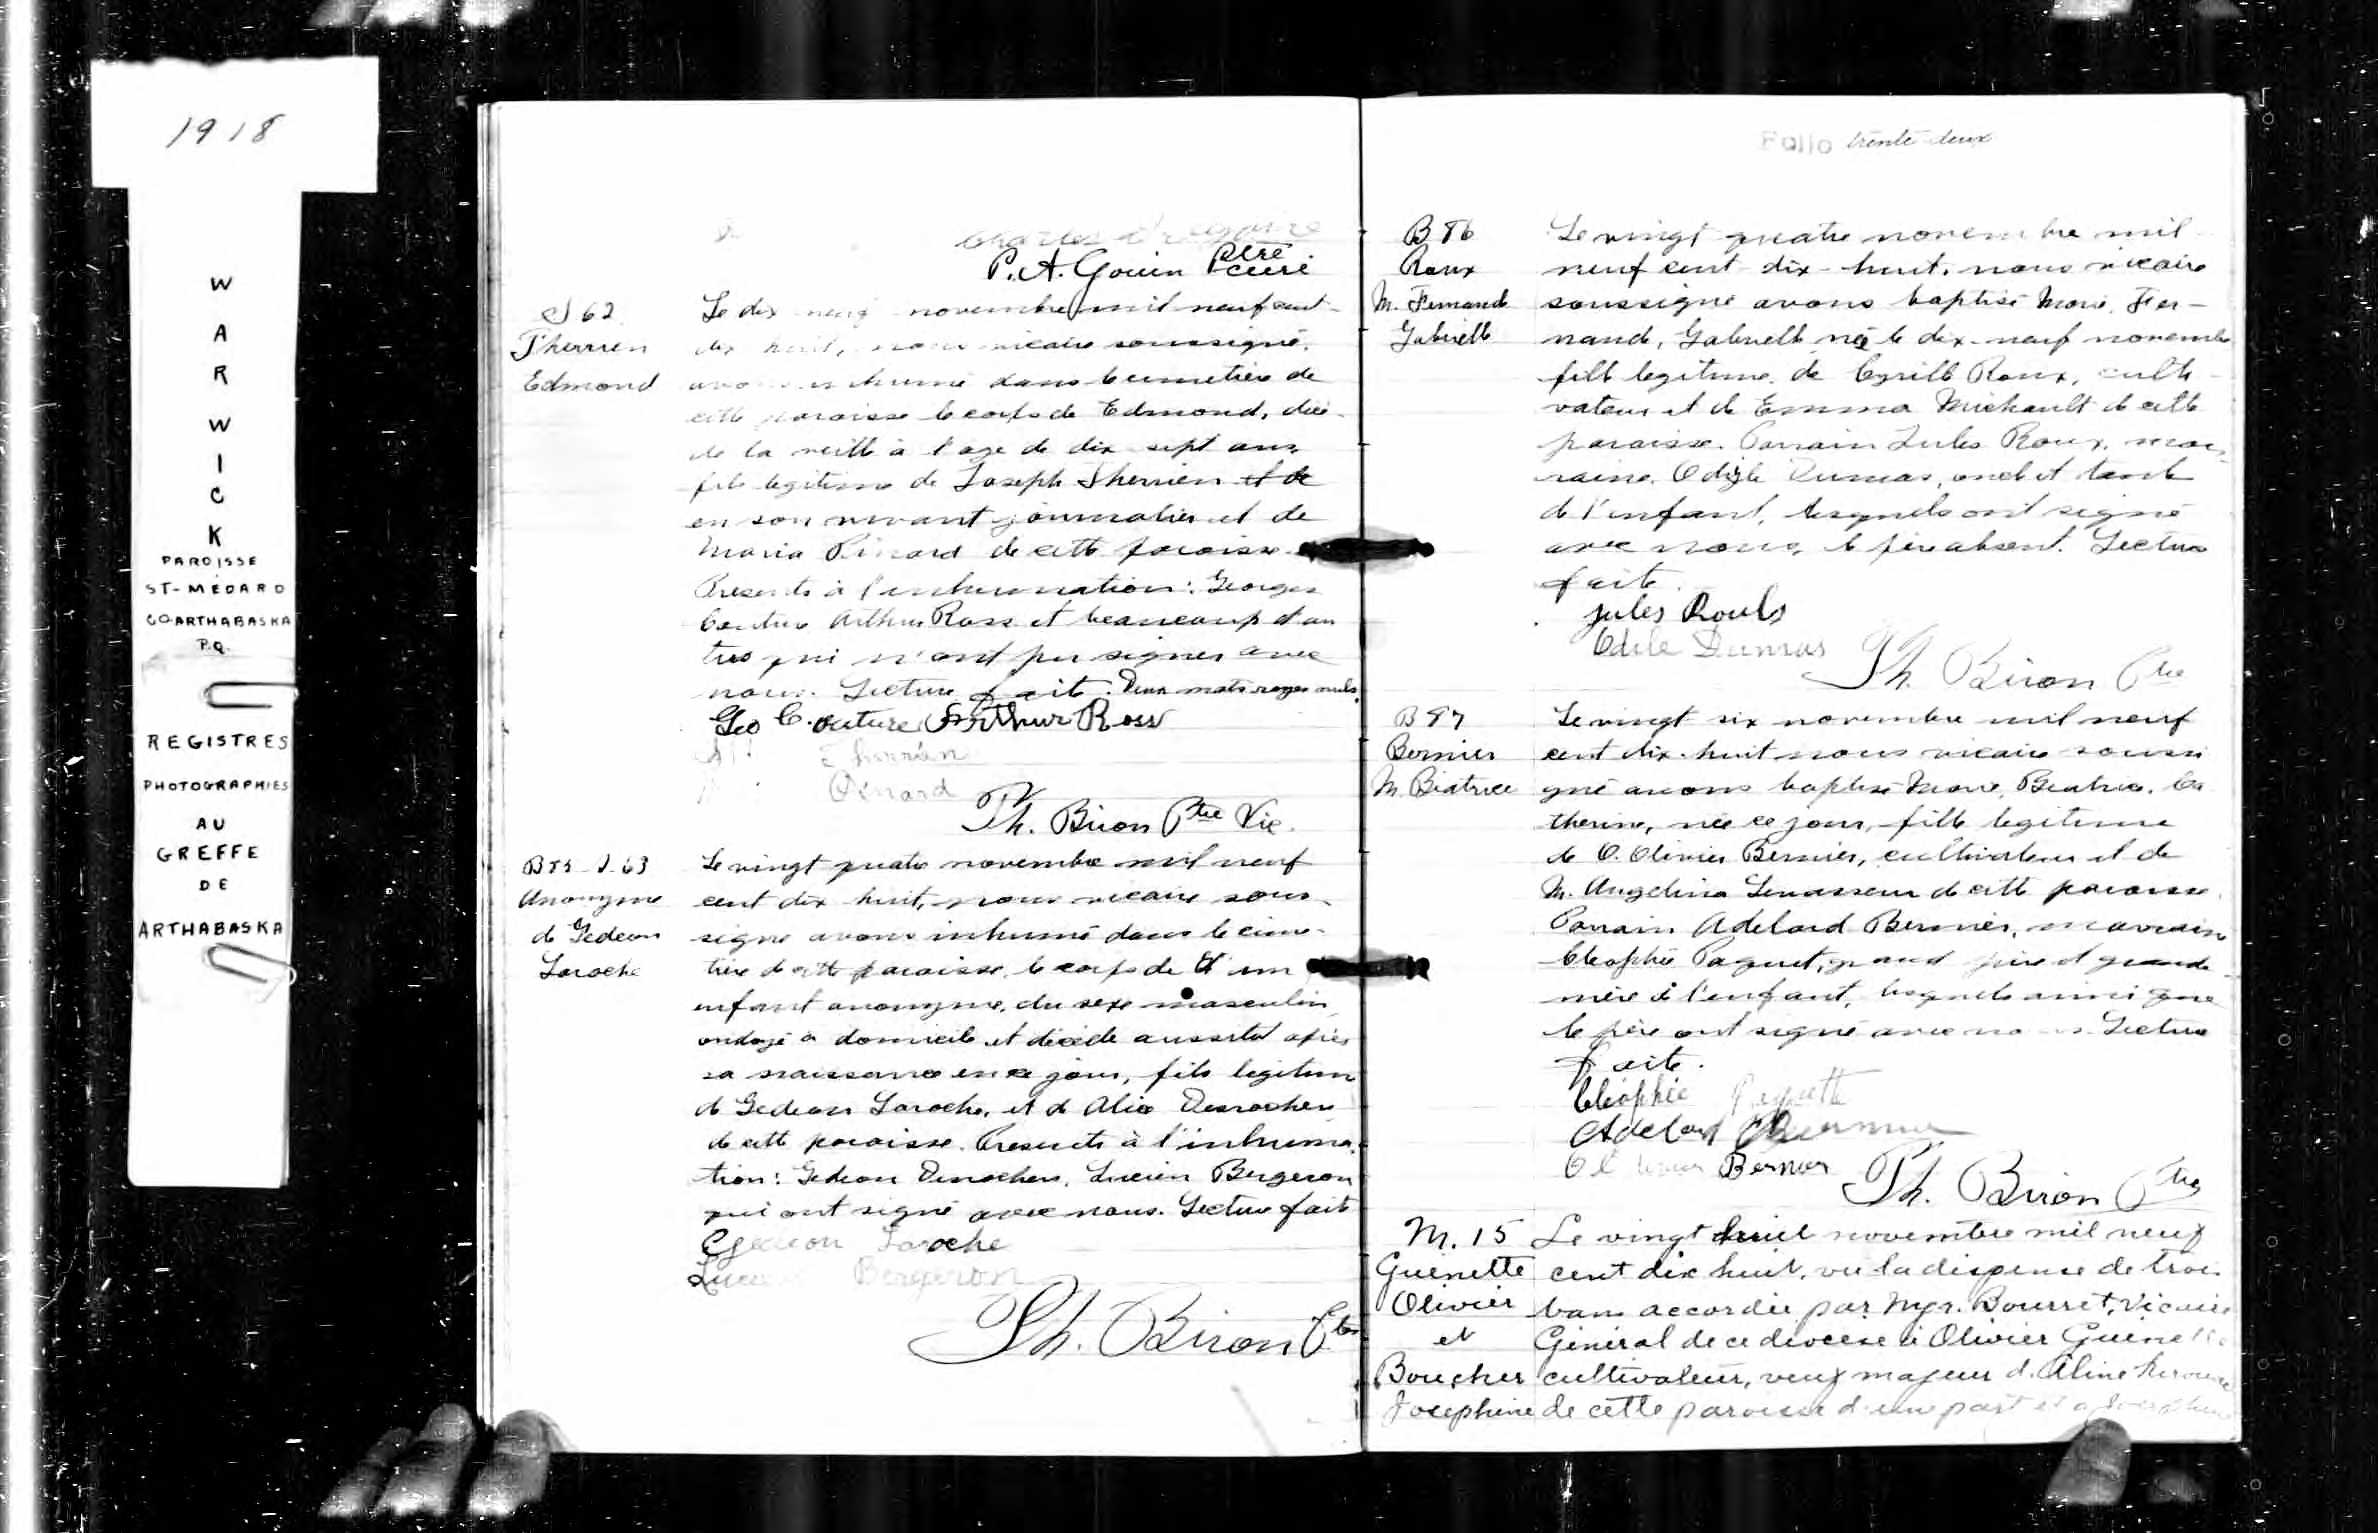 1918
WARWICK
PAROISSE
ST-MÉDARD
CO ARTHABASKA
P.Q.
REGISTRES
PHOTOGRAPHIES
AU
GREFFE
DE
ARTHABASKA
Charles
P. A. Gouin Ptre curé
S 62
Therrien
Edmond
Le dix neuf novembre mil neuf cent
dix huit, nous vicaire soussigné,
avons inhumé dans le cimetière de
cette paroisse le corps de Edmond, décé-
dé la veille à l'age de dix sept ans,
fils legitime de Joseph Therrien et de
en son vivant journalier et de
Maria Pinard de cette paroisse.
Presents à l'inhumation: Georges
Couture Arthur Ross et beaucoup d'au
tres qui n'ont pu signer avec
nous. Lecture faite. Deux mots rayés nuls
Geo Couture Arthur Ross
Therrien
Pinard
Th. Biron Ptre Vic.
B 85 S. 63
Anonyme
de Gedeon
Laroche
Le vingt quatre novembre mil neuf
cent dix huit, nous vicaire sous-
signé avons inhumé dans le cime-
tière de cette paroisse, le corps de un
enfant anonyme, du sexe masculin,
ondoyé à domicile et décédé aussitot après
sa naissance en ce jour, fils legitime
de Gedeon Laroche, et de Alice Desrochers
de cette paroisse. Presents à l'inhuma-
tion: Gedeon Desrochers, Lucien Bergeron
qui ont signé avec nous. Lecture faite
Gedeon Laroche
Lucien Bergeron
Th. Biron Ptre
Folio trente-deux
B 86
Roux
M. Fernande
Gabrielle
Le vingt quatre novembre mil
neuf cent dix-huit, nous vicaire
soussigné avons baptisé Marie, Fer-
nande, Gabrielle née le dix-neuf novembre
fille legitime de Cyrille Roux, culti-
vateur et de Emma Michault de cette
paroisse. Parrain Jules Roux, mar-
raine, Odile Dumas, oncle et tante
de l'enfant, lesquels ont signé
avec nous, le père absent. Lecture
faite.
Jules Rouls
Odile Dumas
Th. Biron Ptre
B 87
Bernier
M. Béatrice
Le vingt six novembre mil neuf
cent dix-huit nous vicaire soussi
gné avons baptisé Marie, Beatrice, Ca
therine, née ce jour, fille legitime
de O. Olivier Bernier, cultivateur et de
M. Angelina Levasseur de cette paroisse.
Parrain Adelard Bernier, marraine
Cléophée Paquet, grand père et grande-
mère de l'enfant, lesquels ainsi que
le père ont signé avec nous. Lecture
faite.
Cléophée Paquette
Adelard Bernier
Olivier Bernier
Th. Biron Ptre
M. 15
Guénette
Olivier
et
Boucher
Josephine
Le vingt huit novembre mil neuf
cent dix huit, vu la dispense de trois
bans accordée par Mgr. Bourret, Vicaire
Général de ce diocèse à Olivier Guénette
cultivateur, veuf majeur d. Aline
de cette paroisse d'une part et a Josephine